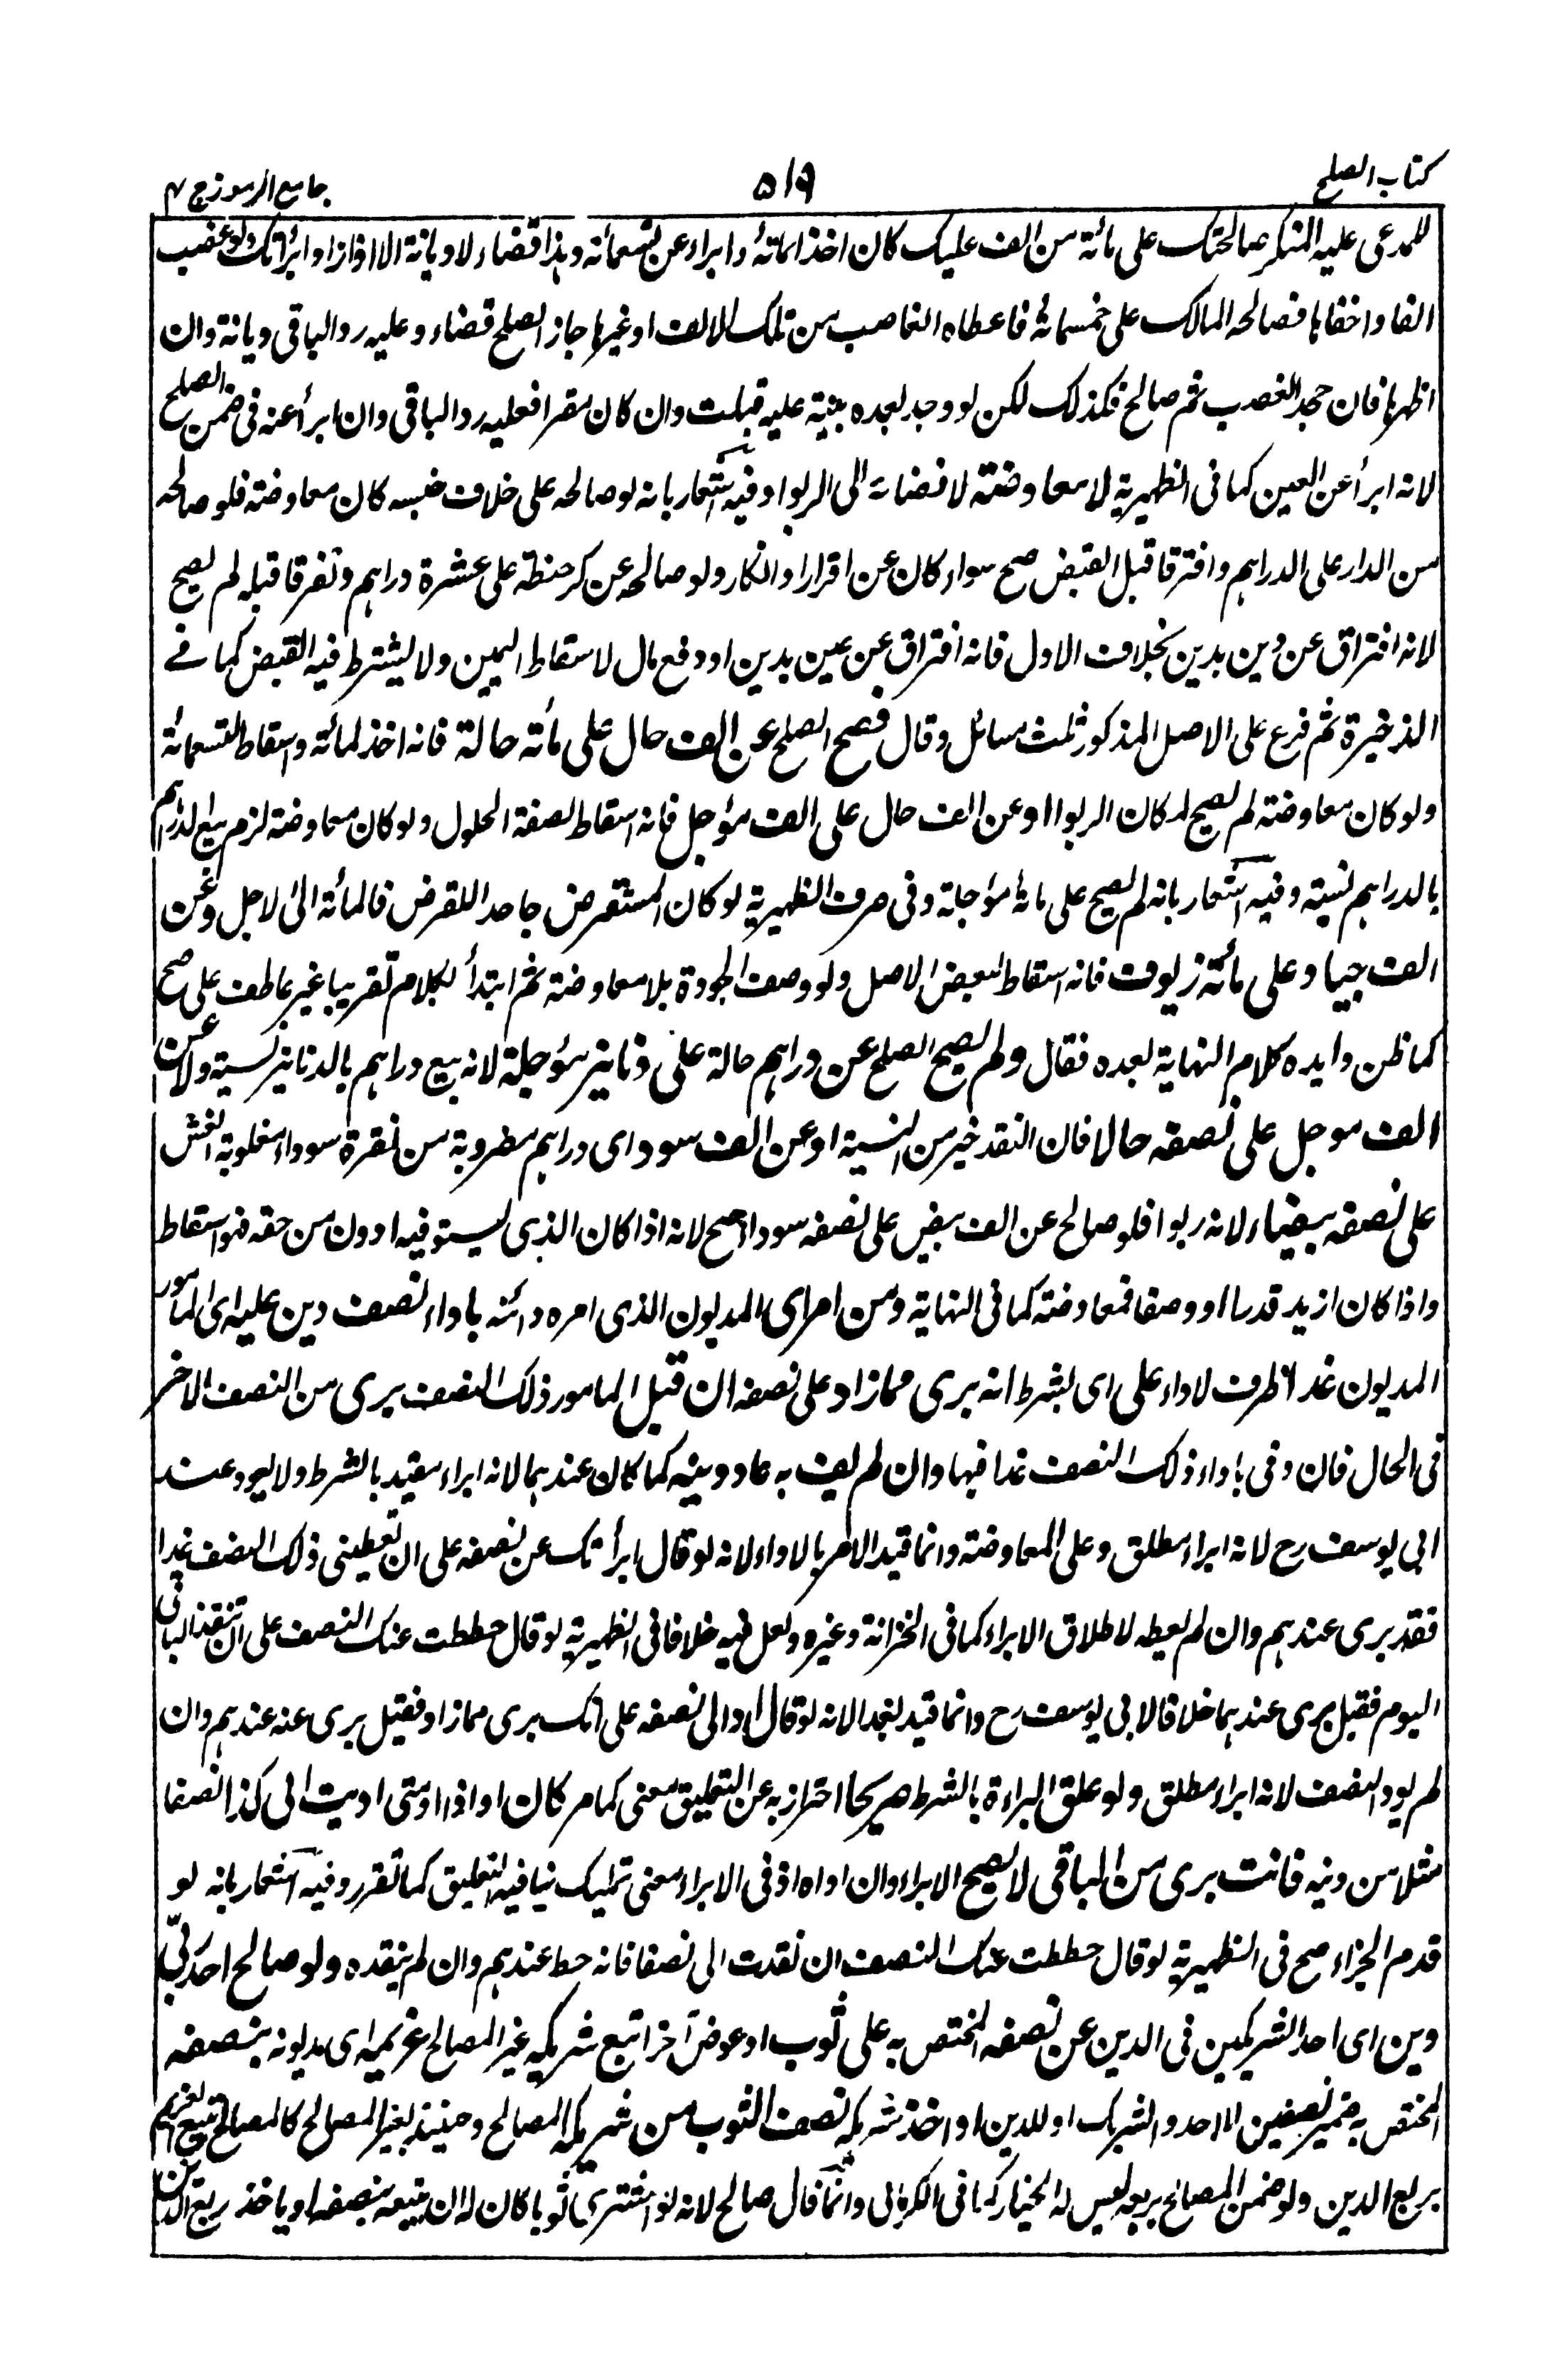 كتاب الصلح
۵۱۹
جامع الرموز ج ۴
للمدعى عليه المنكر صالحتك على مائة من الف عليك كان اخذا لمائة وابراء عن تسعمائة وهذا قضاء لا ديانة الا اذا زاد وابرأتك ولو غصب
الفا واخفاها فصالحه المالك على خمسمائة فاعطاه الغاصب من تلك الالف او غيرها جاز الصلح قضاء وعليه رد الباقى ديانة وان
اظهرها فان جحد الغصب ثم صالح فكذلك لكن لو وجد بعده بينة عليه قبلت وان كان مقرا فعليه رد الباقى وان ابرأ عنه فى ضمن الصلح
لانه ابرأ عن العين كما فى الظهيرية لا معاوضة لافضائه الى الربوا وفيه اشعار بانه لو صالحه على خلاف جنسه كان معاوضة فلو صالحه
من الدار على الدراهم وافترقا قبل القبض صح سواء كان عن اقرار او انكار ولو صالحه عن كر حنطة على عشرة دراهم وتفرقا قبله لم يصح
لانه افتراق عن دين بدين بخلاف الاول فانه افتراق عن عين بدين او دفع مال لاسقاط اليمين ولا يشترط فيه القبض كما فے
الذخيرة ثم فرع على الاصل المذكور ثلث مسائل وقال فصح الصلح عن الف حال على مائة حالة فانه اخذ لمائة واسقاط لتسعمائة
ولو كان معاوضة لم يصح لمكان الربوا او عن الف حال على الف مؤجل فانه اسقاط لصفة الحلول ولو كان معاوضة لزم بيع الدراهم
بالدراهم نسية وفيه اشعار بانه لم يصح على مائة مؤجلة وفى صرف الظهيرية لو كان المستقرض جاحدا للقرض فالمائة الى الاجل وعن
الف جياد على مائة زيوف فانه اسقاط لبعض الاصل ولو وصف الجودة بلا معاوضة ثم ابتدأ بكلام تقريبا غير عاطف على صح
كما ظن وايده كلام النهاية بعده فقال ولم يصح الصلح عن دراهم حالة على دنانير مؤجلة لانه بيع دراهم بالدنانير نسية ولا عن
الف موجل على نصفه حالا فان النقد خير من النسية او عن الف سود اى دراهم مضروبة من نقرة سوداء مغلوبة الغش
على نصفه بيضاء لانه ربوا فلو صالح عن الف بيض على نصفه سودا صح لانه اذا كان الذى يستوفيه ادون من حقه فهو اسقاط
واذا كان ازيد قدرا او وصفا فمعاوضة كما فى النهاية ومن امر اى المديون الذى امره دائنه باداء نصف دين عليه اى المامور
المديون غدا ظرف لاداء على اى بشرط انه برى مما زاد على نصفه ان قبل المامور ذلك النصف يبرى من النصف الاخر
فى الحال فان وفى باداء ذلك النصف غدا فبها وان لم يف به عاد دينه كما كان عندهما لانه ابراء مقيد بالشرط ولا يعود عند
ابى يوسف رح لانه ابراء مطلق وعلى للمعاوضة وانما قيد الامر بالاداء لانه لو قال ابرأتك عن نصفه على ان تعطينى ذلك النصف غدا
فقد برى عندهم وان لم يعطه لاطلاق الابراء كما فى الخزانة وغيره ولعل فيه خلافا فى الظهيرية لو قال حططت عنك النصف على ان تنقد الباقى
اليوم فقبل برى عندهما خلافا لابى يوسف رح وانما قيد بغد الانه لو قال اد الى نصفه على انك برى مما زاد فقبل برى عنه عندهم وان
لم يود النصف لانه ابراء مطلق ولو علق البراءة بالشرط صريحا احتراز به عن التعليق معنى كما مر كان او اذا او متى اديت الى كذا نصفا
مثلا من دينه فانت برى من الباقى لا يصح الابراء وان اداه اذ فى الابراء معنى تمليك ينافيه التعليق كما تقرر وفيه اشعار بانه لو
قدم الجزاء صح فى الظهيرية لو قال حططت عنك النصف ان نقدت الى نصفا فانه حط عندهم وان لم ينقده ولو صالح احد ربّى
دين اى احد الشريكين فى الدين عن نصفه المختص به على ثوب او عوض آخر اتبع شريكه غير المصالح غريمه اى مديونه بنصفه
المختص به ضمير نصفين للاحد والشريك او للدين او اخذ شريكه نصف الثوب من شريكه المصالح وحينئذ لغير المصالح كالمصالح اتبيع الغريم
بربع الدين ولو ضمن المصالح بربعه ليس له الخيار كما فى الكرمانى وانما قال صالح لانه لو اشترى ثوبا كان له ان يتبعه بنصفه او ياخذ ربع الدين